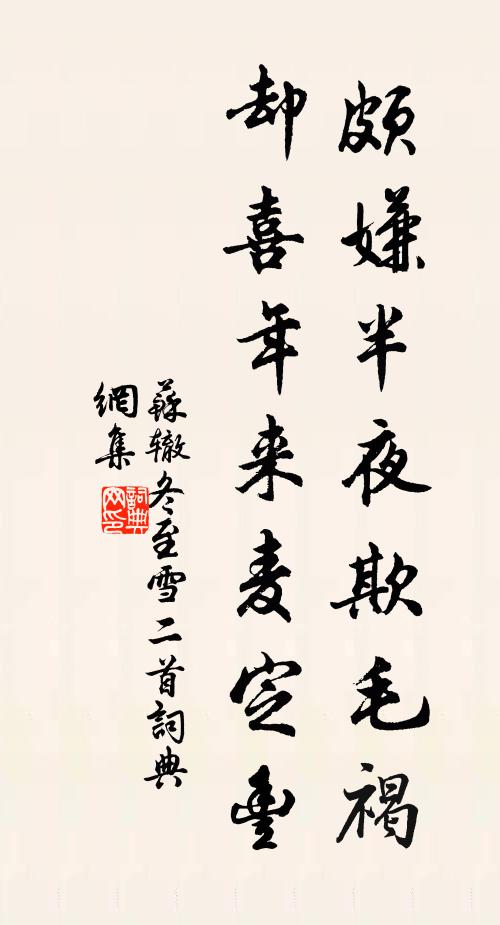 頗嫌半夜欺毛褐
却喜年来麦定豐
蘇辙冬至雪二首詞典
網集
詞典网印